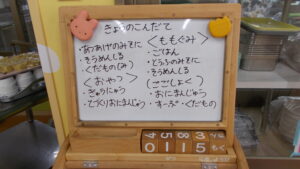 きょうのこんだて
・なつあげのみそに
・そうめんじる
・くだもの(み)
<おやつ>
・ぎゅうにゅう
・てづくりおにまんじゅう
<ももぐみ>
・ごはん
・とうふのみそに
・そうめんじる
(ごごしょく)
・おにまんじゅう
・すーぷ ・くだもの